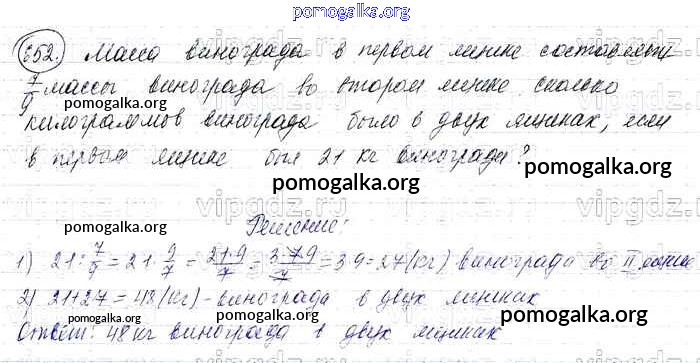 pomogalka.org
652. Масса винограда в первом ящике составляет
7/9 массы винограда во втором ящике. Сколько
pomogalka.org
килограммов винограда было в двух ящиках, если
в первом ящике был 21 кг винограда?
pomogalka.org
pomogalka.org
Решение:
1) 21:7/9=21·9/7=21·9/7=3·7·9/7=3·9=27(кг) винограда во II ящике
pomogalka.org
2) 21+27=48(кг)-винограда в двух ящиках
pomogalka.org
Ответ: 48 кг винограда в двух ящиках
pomogalka.org